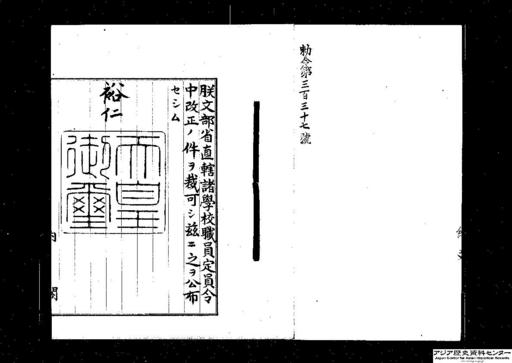 勅令第三百三十七號
朕文部省直轄諸學校職員定員令
中改正ノ件ヲ裁可シ茲ニ之ヲ公布
セシム
裕仁
天皇
御璽
内閣
アジア歴史資料センター
Japan Center for Asian Historical Records